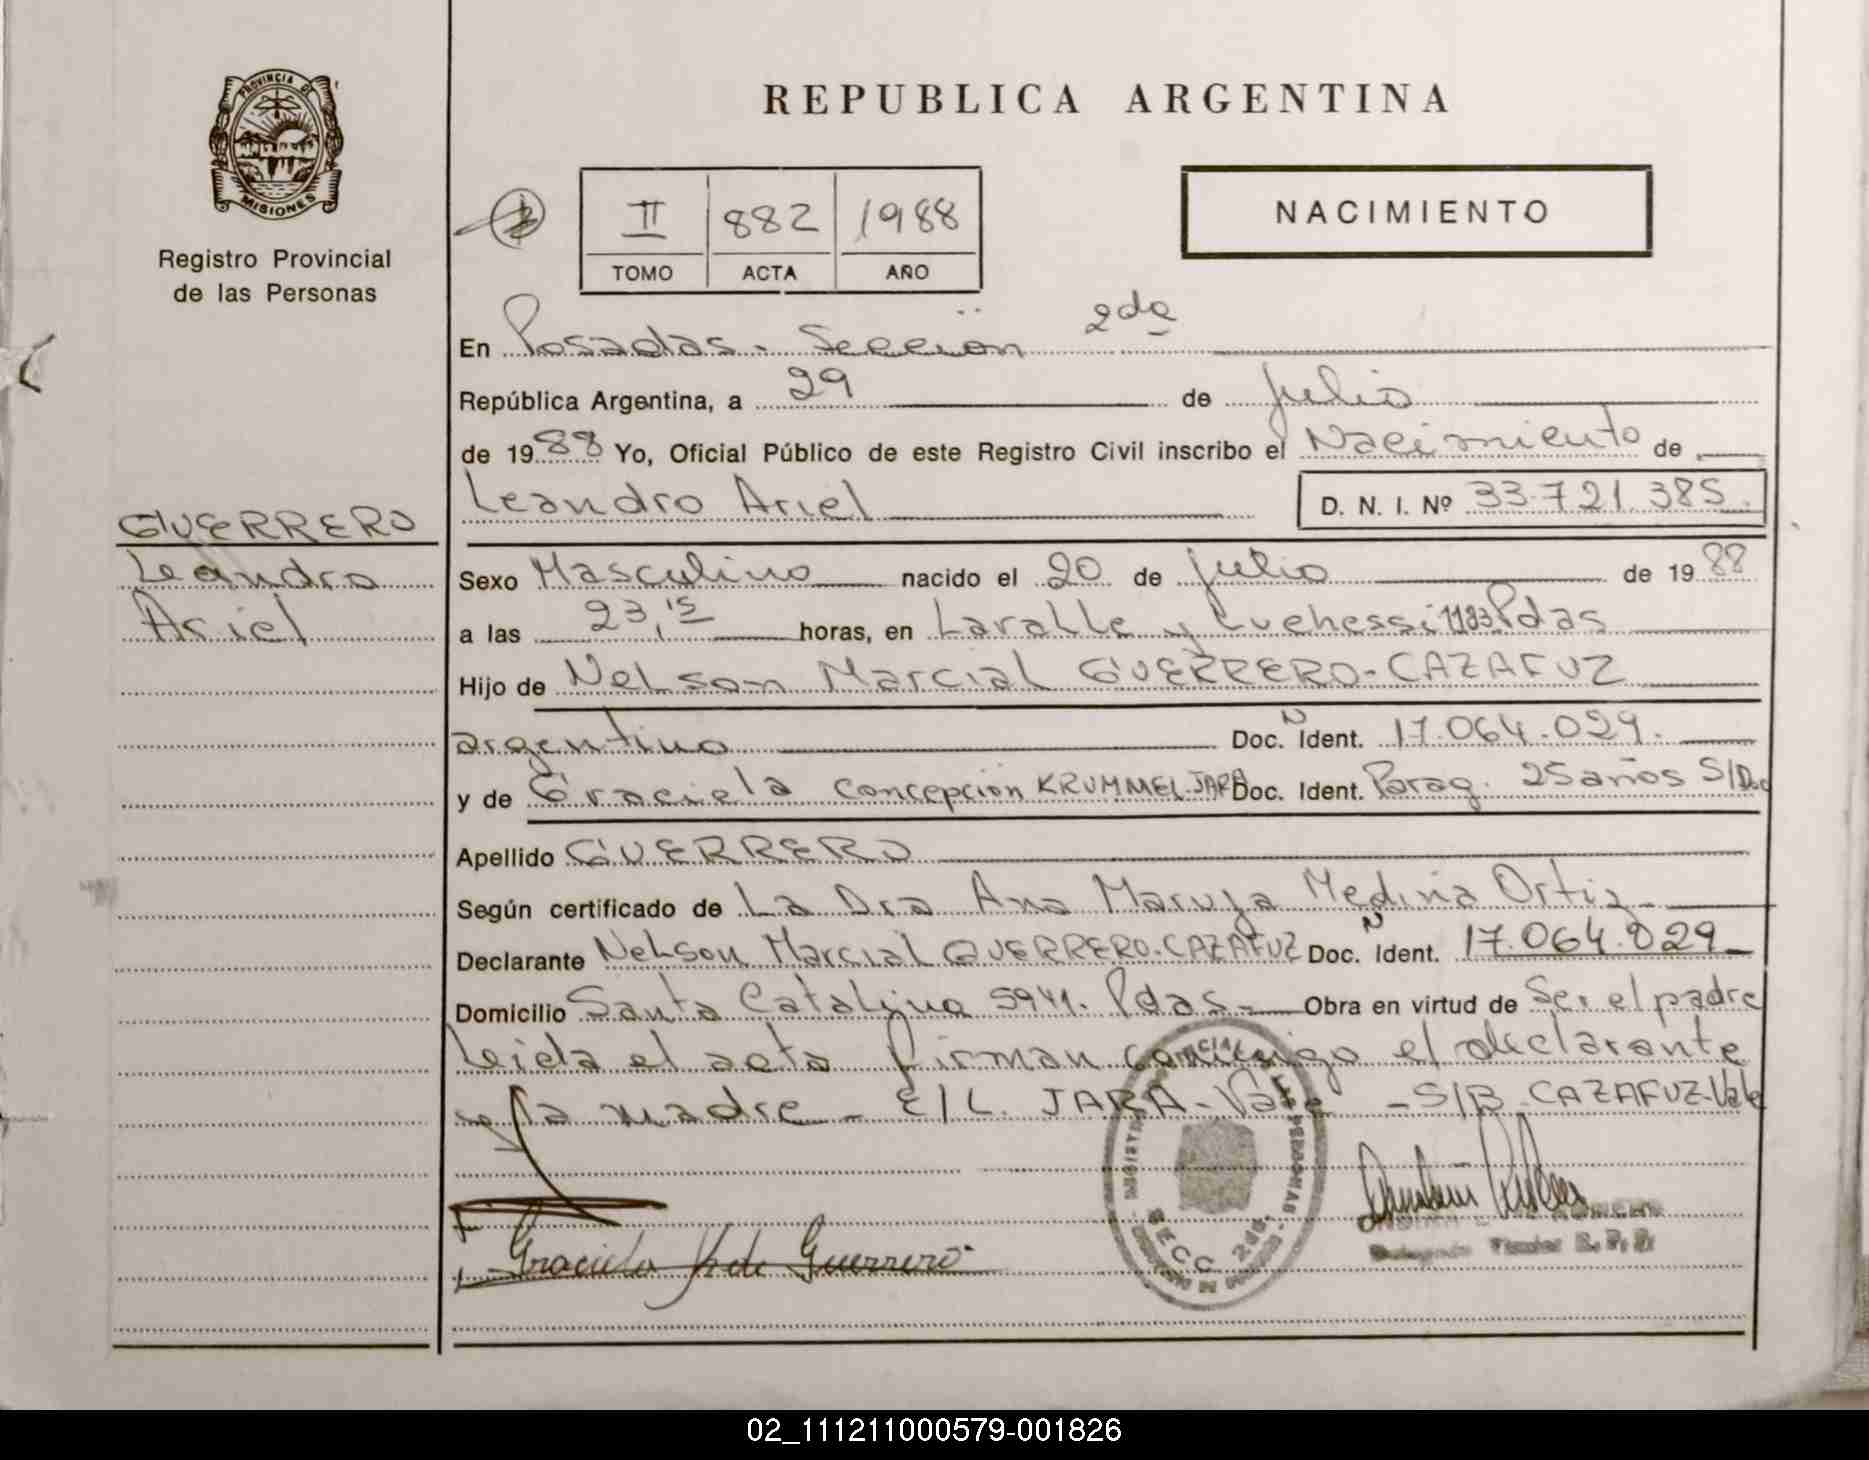 PROVINCIA DE
MISIONES
Registro Provincial
de las Personas
REPUBLICA ARGENTINA
II 882 1988
TOMO ACTA AÑO
NACIMIENTO
En Posadas. Sección 2da
República Argentina, a 29 de Julio
de 1988 Yo, Oficial Público de este Registro Civil inscribo el Nacimiento de
Leandro Ariel D. N. I. Nº 33.721.385.
GUERRERO
Leandro
Ariel
Sexo Masculino nacido el 20 de Julio de 1988
a las 23,15 horas, en Lavalle y Luchessi 1183 Pdas
Hijo de Nelson Marcial GUERRERO-CAZAFUZ
argentino Doc. N Ident. 17.064.029.
y de Graciela Concepción KRUMMEL-JARA Doc. Ident. Parag. 25 años S/Doc
Apellido GUERRERO
Según certificado de La Dra Ana Maruja Medina Ortiz
Declarante Nelson Marcial GUERRERO-CAZAFUZ Doc. N Ident. 17.064.029
Domicilio Santa Catalina 5941. Pdas Obra en virtud de Ser el padre
Leida el acta firman conmigo el declarante
y la madre - E/L. JARA-Vale - S/B CAZAFUZ-Vale
Graciela K de Guerrero
SECC 2da.
02_111211000579-001826